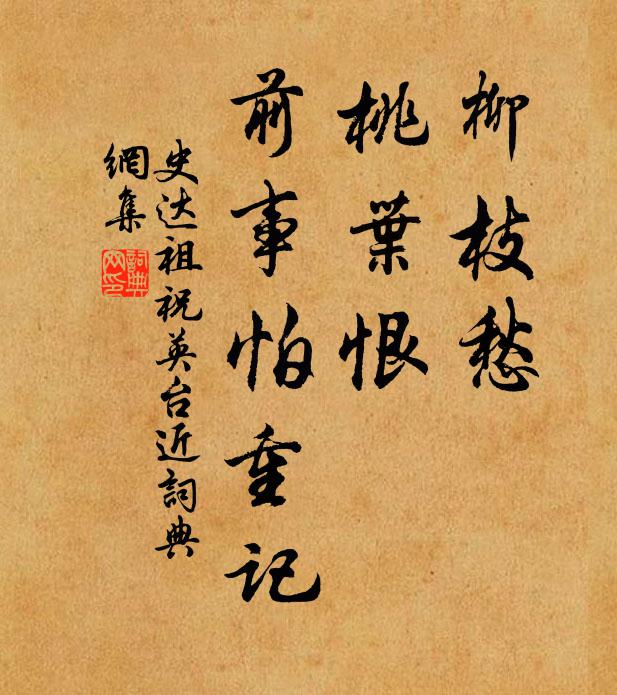 柳枝愁
桃葉恨
前事怕重记
史达祖祝英台近詞典
網集
詞典
网印